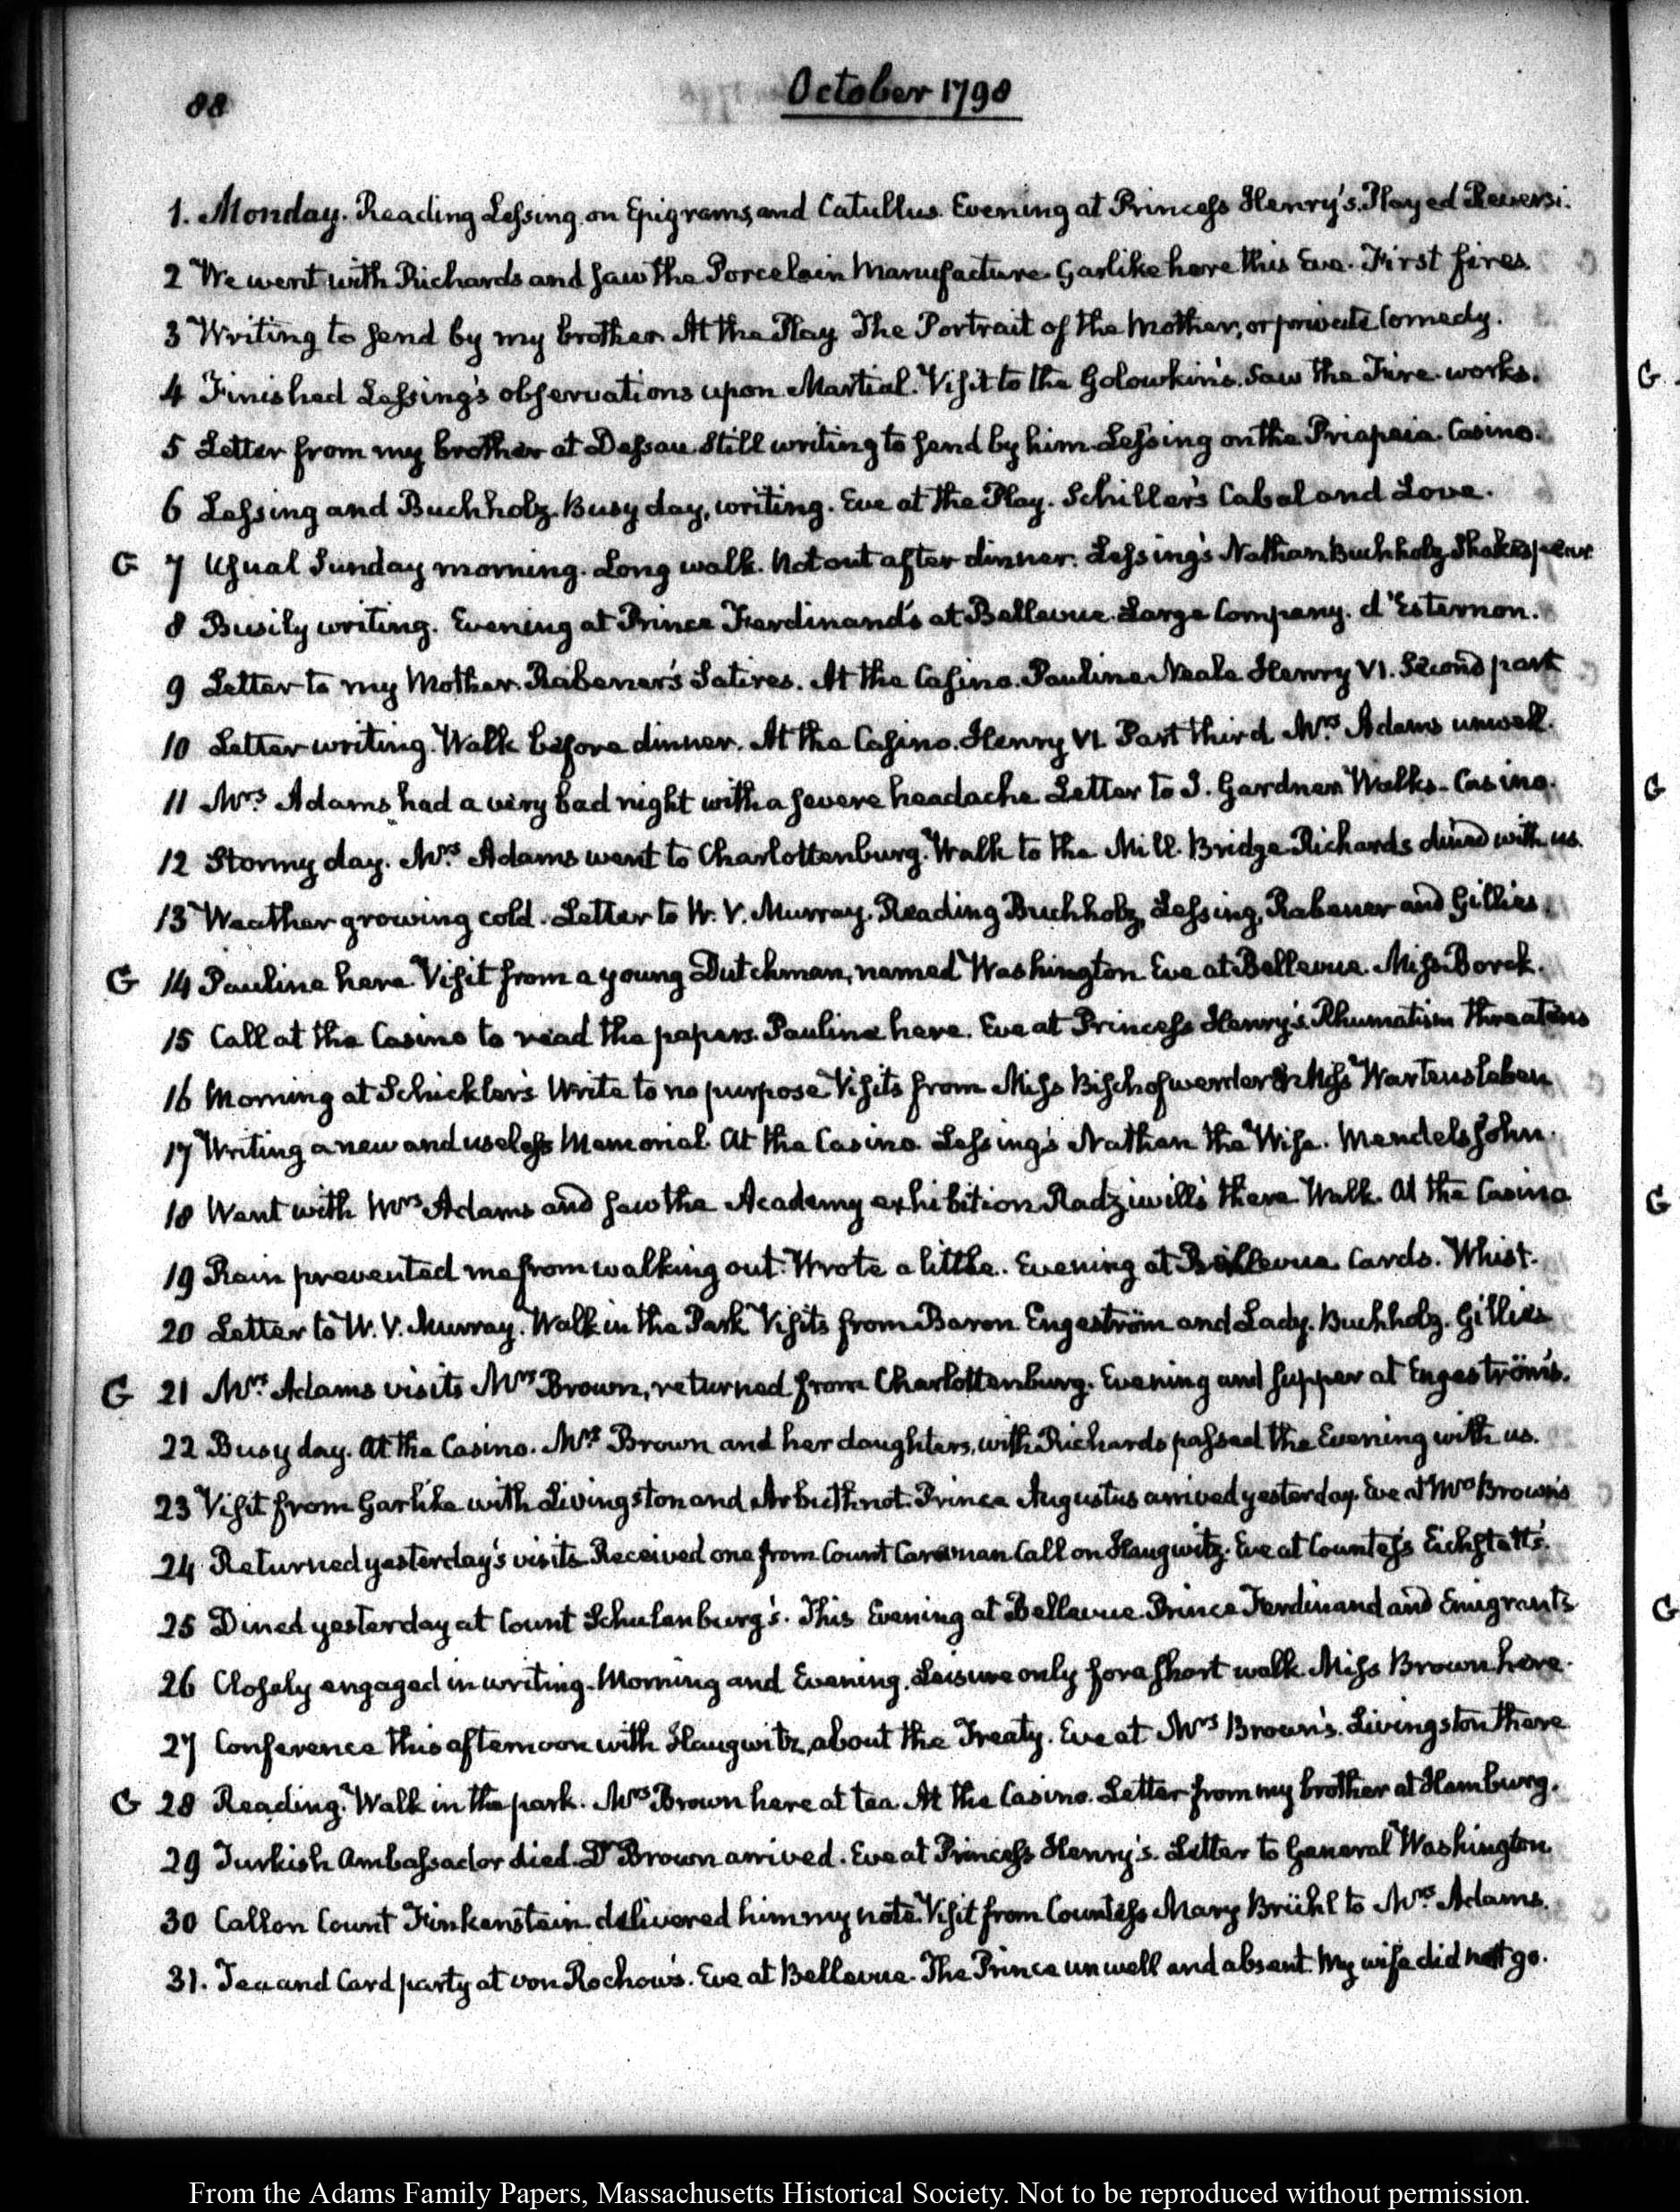 88
October 1798
1. Monday. Reading Lessing on Epigrams, and Catullus. Evening at Princess Henry's. Played Reversi.
2 We went with Richards and saw the Porcelain Manufacture. Garlike here this Eve. First fires.
3 Writing to send by my brother. At the Play. The Portrait of the Mother, or private Comedy.
4 Finished Lessing's observations upon Martial. Visit to the Golowkin's. Saw the Fire-works.
5 Letter from my brother at Dessau. Still writing to send by him. Lessing on the Priapeia. Casino.
6 Lessing and Buchholz. Busy day, writing. Eve at the Play. Schiller's Cabal and Love.
G 7 Usual Sunday morning. Long walk. Not out after dinner. Lessing's Nathan. Buchholz. Shakespear
8 Busily writing. Evening at Prince Ferdinand's at Bellevue. Large Company. d'Esternon.
9 Letter to my Mother. Rabener's Satires. At the Casino. Pauline Neale. Henry VI. Second part
10 Letter writing. Walk before dinner. At the Casino. Henry VI. Part third. Mrs. Adams unwell.
11 Mrs. Adams had a very bad night with a severe headache. Letter to J. Gardner. Walks. Casino.
12 Stormy day. Mrs. Adams went to Charlottenburg. Walk to the Mill Bridge. Richards dined with us.
13 Weather growing cold. Letter to W. V. Murray. Reading Buchholz, Lessing, Rabener and Gillies.
G 14 Pauline here. Visit from a young Dutchman, named Washington. Eve at Bellevue. Miss Borck.
15 Call at the Casino to read the papers. Pauline here. Eve at Princess Henry's. Rhumatism threatens
16 Morning at Schickler's. Write to no purpose. Visits from Miss Bischofwerder & Miss Wartensleben
17 Writing a new and useless Memorial. At the Casino. Lessing's Nathan the Wise. Mendelssohn.
18 Went with Mrs. Adams and saw the Academy exhibition. Radziwill's there. Walk. At the Casino
19 Rain prevented me from walking out. Wrote a little. Evening at Bellevue. Cards. Whist.
20 Letter to W. V. Murray. Walk in the Park. Visits from Baron Engeström and Lady. Buchholz. Gillies
G 21 Mrs. Adams visits Mrs. Brown, returned from Charlottenburg. Evening and supper at Engeström's.
22 Busy day. At the Casino. Mrs. Brown and her daughters, with Richards passed the Evening with us.
23 Visit from Garlike with Livingston and Arbuthnot. Prince Augustus arrived yesterday. Eve at Mrs Brown's
24 Returned yesterday's visits. Received one from Count Caraman. Call on Haugwitz. Eve at Countess Eichstatt's.
25 Dined yesterday at Count Schulenburg's. This Evening at Bellevue. Prince Ferdinand and Emigrants
26 Closely engaged in writing. Morning and Evening. Leisure only for a short walk. Miss Brown here.
27 Conference this afternoon with Haugwitz, about the Treaty. Eve at Mrs Brown's. Livingston there
G 28 Reading. Walk in the park. Mrs Brown here at tea. At the Casino. Letter from my brother at Hamburg.
29 Turkish Ambassador died. Dr Brown arrived. Eve at Princess Henry's. Letter to General Washington.
30 Call on Count Finkenstein. delivered him my note. Visit from Countess Mary Brühl to Mrs. Adams.
31. Tea and Card party at von Rochow's. Eve at Bellevue. The Prince unwell and absent. My wife did not go.
G
G
G
G
From the Adams Family Papers, Massachusetts Historical Society. Not to be reproduced without permission.